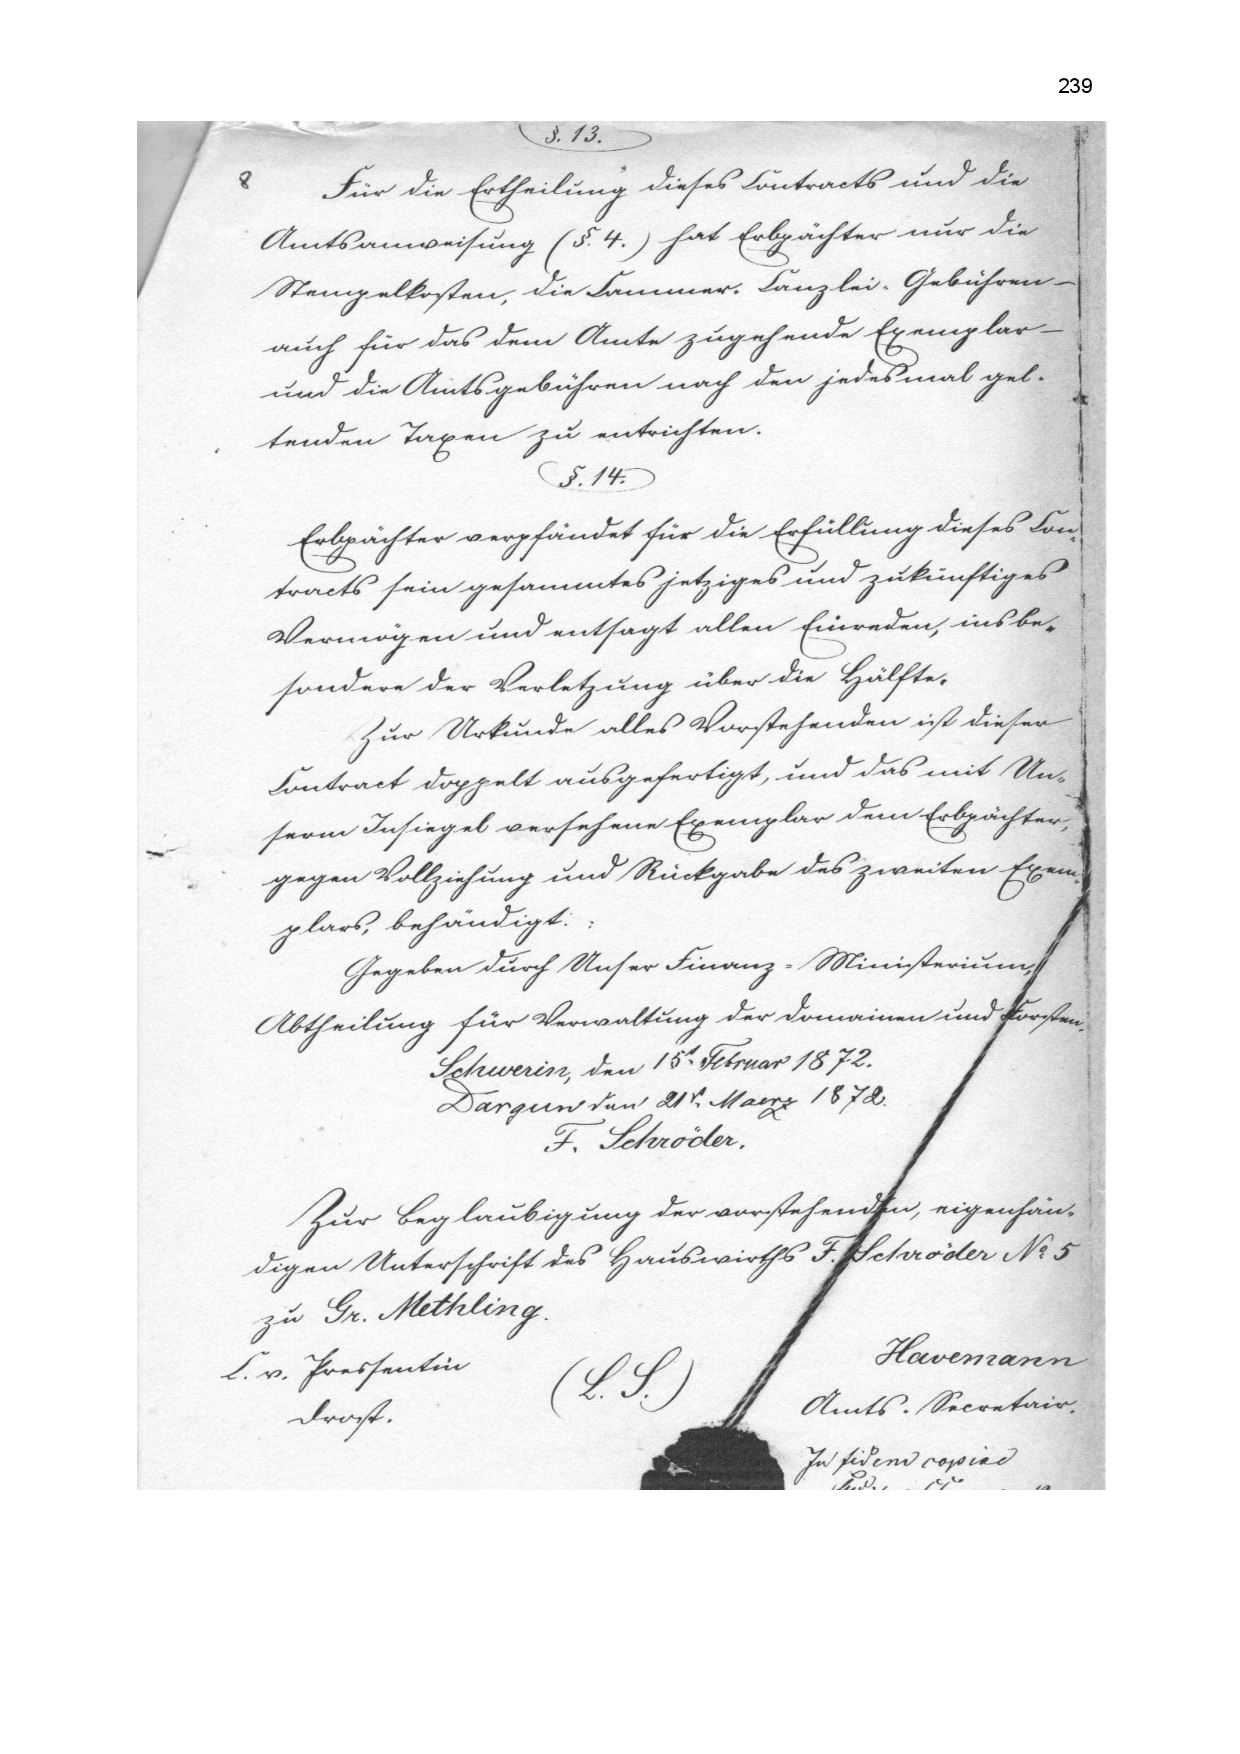 239
§. 13.
8
Für die Ertheilung dieses Contracts und die
Amtsanweisung (§. 4.) hat Erbpächter nur die
Stempelkosten, die Cammer- Canzlei- Gebühren –
auch für das dem Amte zugehende Exemplar –
und die Amtsgebühren nach den jedesmal gel-
tenden Taxen zu entrichten.
§. 14.
Erbpächter verpfändet für die Erfüllung dieses Con-
tracts sein gesammtes jetziges und zukünftiges
Vermögen und entsagt allen Einreden, insbe-
sondere der Verletzung über die Hälfte.
Zur Urkunde alles Vorstehenden ist dieser
Contract doppelt ausgefertigt, und das mit Un-
serm Insiegel versehene Exemplar dem Erbpächter,
gegen Vollziehung und Rückgabe des zweiten Exem-
plars, behändigt.
Gegeben durch Unser Finanz-Ministerium,
Abtheilung für Verwaltung der Domainen und Forsten.
Schwerin, den 15t. Februar 1872.
Dargun den 21t. Maerz 1872.
F. Schröder.
Zur Beglaubigung der vorstehenden, eigenhän-
digen Unterschrift des Hauswirths F. Schröder No 5
zu Gr. Methling.
C. v. Pressentin
Drost.
(L. S.)
Havemann
Amts- Secretair.
In fidem copiae